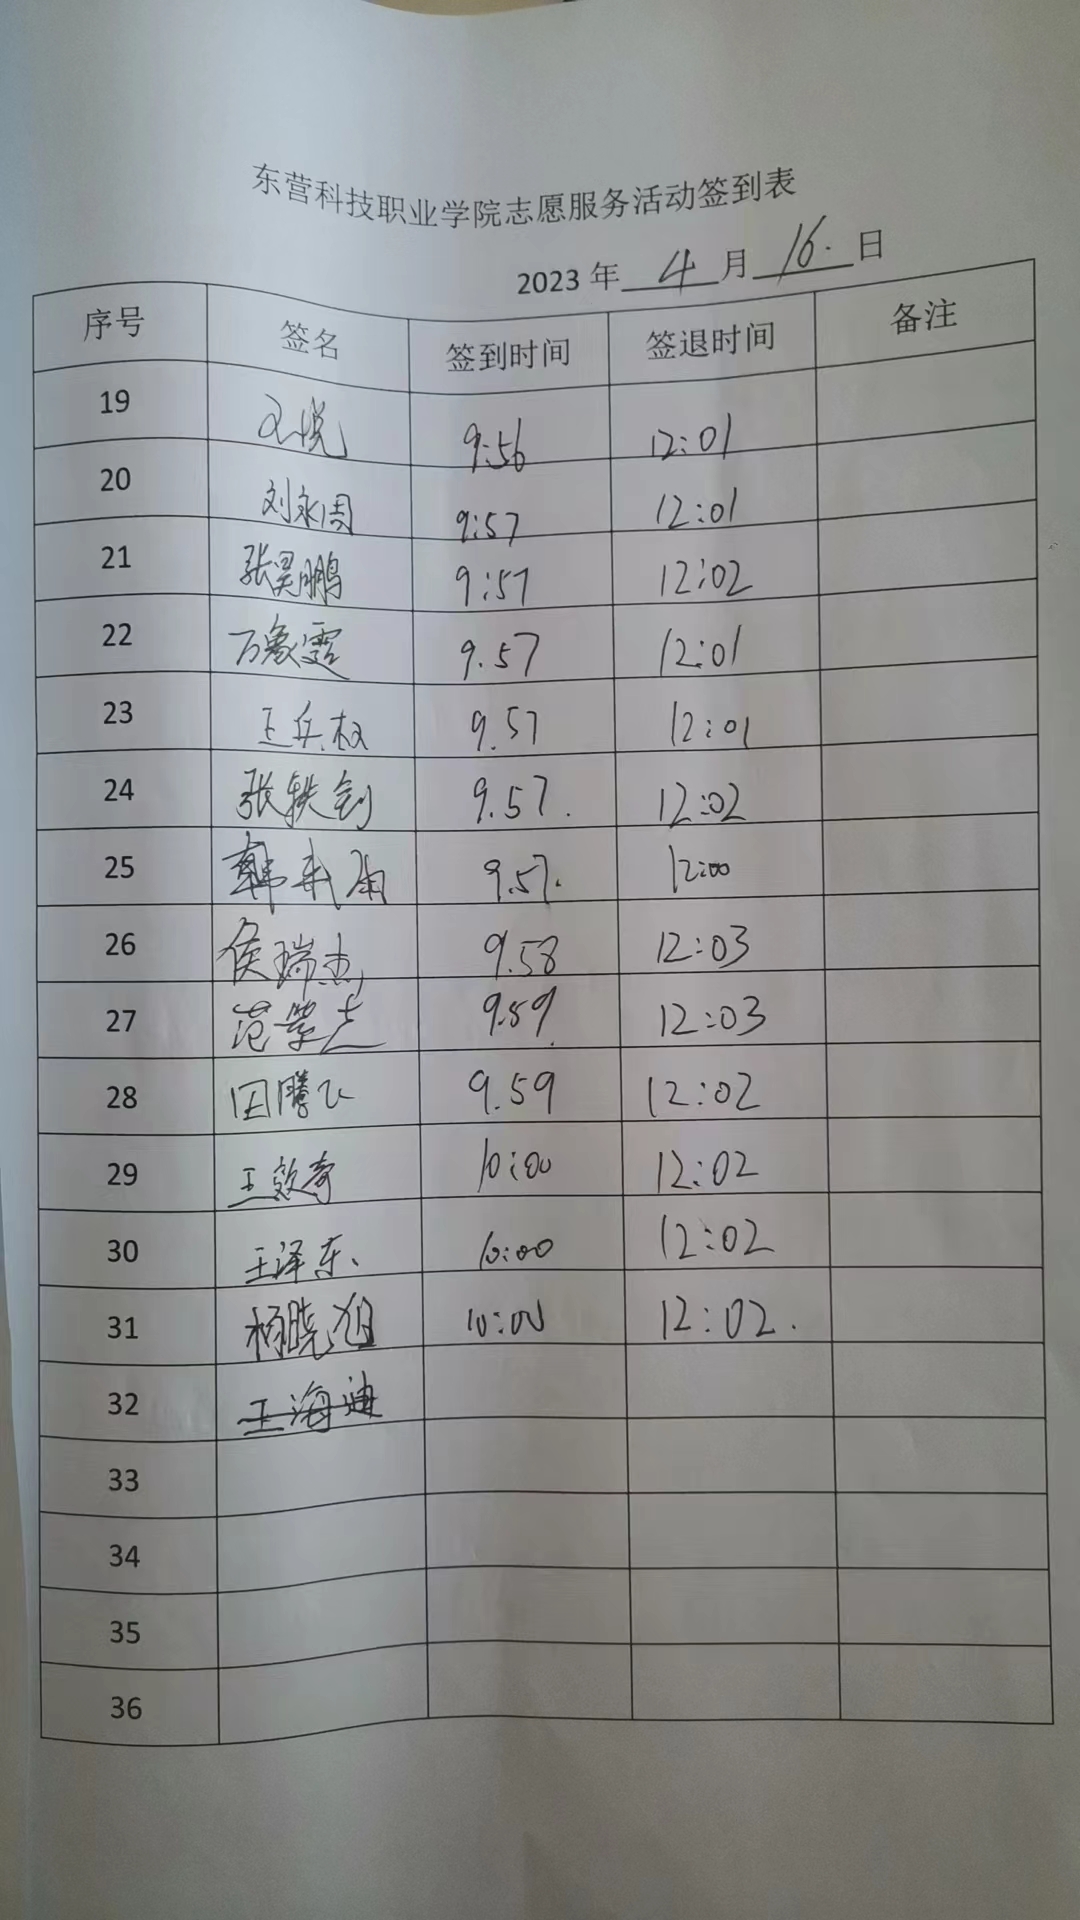 东营科技职业学院志愿服务活动签到表
2023 年 4 月 16. 日
序号 签名 签到时间 签退时间 备注
19 9:56 12:01
20 刘永周 9:57 12:01
21 张昊鹏 9:57 12:02
22 万象霆 9.57 12:01
23 王兵权 9.57 12:01
24 张轶钊 9.57. 12:02
25 韩 9.57. 12:00
26 侯瑞杰 9.58 12:03
27 范荣 9.59. 12:03
28 田腾飞 9.59 12:02
29 王效奇 10:00 12:02
30 王泽东 10:00 12:02
31 杨晓旭 10:00 12:02.
32 王海迪
33
34
35
36